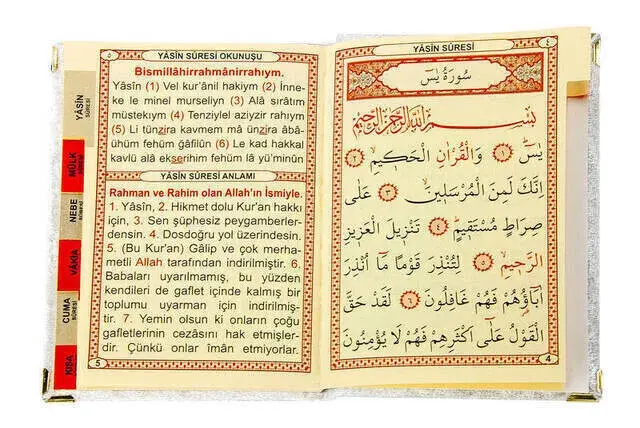 ٤
YÂSİN SÛRESİ
سُورَةُ يٰسٓ
بِسْمِ اللّٰهِ الرَّحْمٰنِ الرَّحِيمِ
يٰسٓ ﴿١﴾ وَالْقُرْاٰنِ الْحَكِيمِ ﴿٢﴾
اِنَّكَ لَمِنَ الْمُرْسَلِينَ ﴿٣﴾ عَلٰى
صِرَاطٍ مُسْتَقِيمٍ ﴿٤﴾ تَنْزِيلَ الْعَزِيزِ
الرَّحِيمِ ﴿٥﴾ لِتُنْذِرَ قَوْمًا مَٓا اُنْذِرَ
اٰبَٓاؤُ۬هُمْ فَهُمْ غَافِلُونَ ﴿٦﴾ لَقَدْ حَقَّ
الْقَوْلُ عَلٰٓى اَكْثَرِهِمْ فَهُمْ لَا يُؤْمِنُونَ
4
٥
YÂSİN SÛRESİ OKUNUŞU
Bismillâhirrahmânirrahıym.
Yâsîn (1) Vel kur'ânil hakiym (2) İnne-
ke le minel murseliyn (3) Alâ sırâtım
müstekıym (4) Tenziylel aziyzir rahıym
(5) Li tünzira kavmem mâ ünzira âbâ-
ühüm fehüm ğâfilûn (6) Le kad hakkal
kavlü alâ ekserihim fehüm lâ yü'minûn
YÂSİN SÛRESİ ANLAMI
Rahman ve Rahim olan Allah'ın İsmiyle.
1. Yâsîn, 2. Hikmet dolu Kur'an hakkı
için, 3. Sen şüphesiz peygamberler-
densin. 4. Dosdoğru yol üzerindesin.
5. (Bu Kur'an) Gâlip ve çok merha-
metli Allah tarafından indirilmiştir. 6.
Babaları uyarılmamış, bu yüzden
kendileri de gaflet içinde kalmış bir
toplumu uyarman için indirilmiş-
tir. 7. Yemin olsun ki onların çoğu
gafletlerinin cezâsını hak etmişler-
dir. Çünkü onlar îmân etmiyorlar.
5
YÂSİN
SÛRESİ
MÜLK
SÛRESİ
NEBE
SÛRESİ
VÂKIA
CUMA
SÛRESİ
KISA